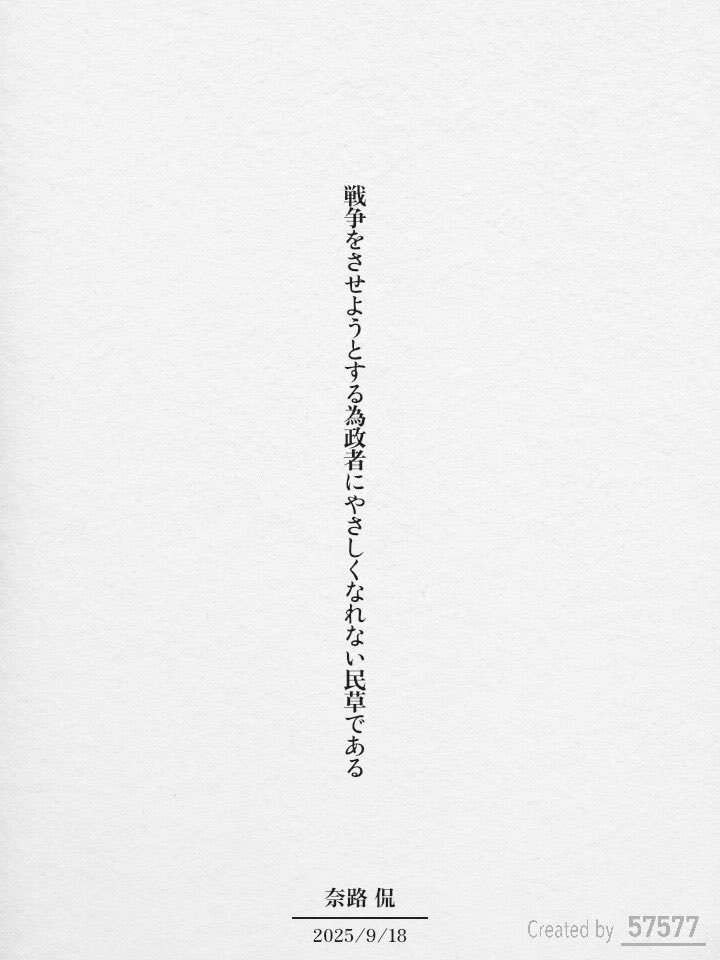 戦争をさせようとする為政者にやさしくなれない民草である
奈路 侃
2025/9/18
Created by 57577